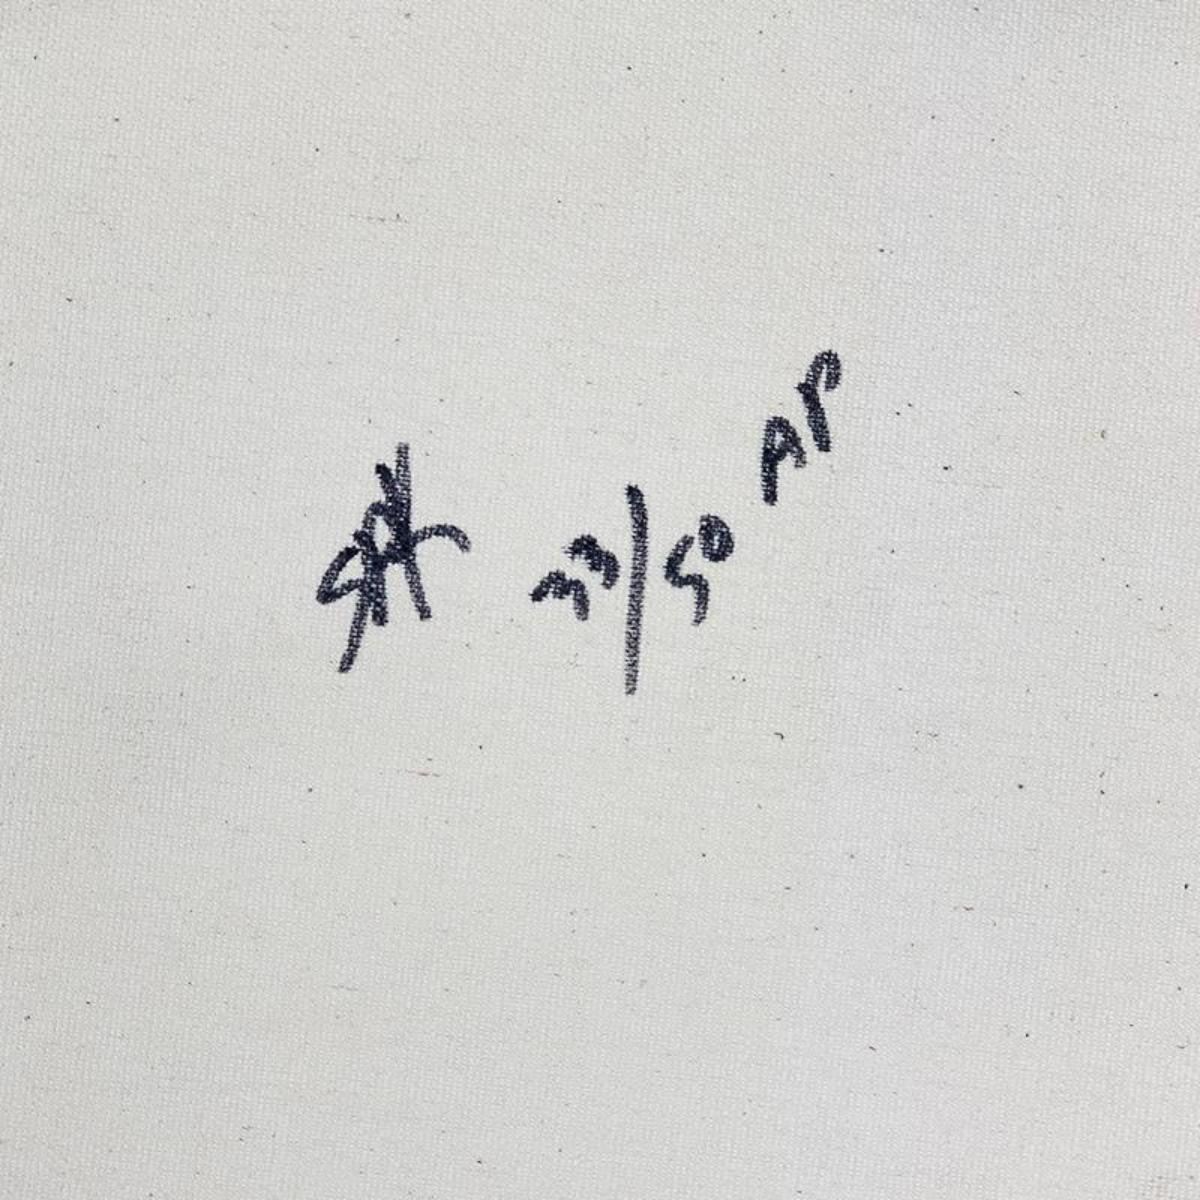 33/50 AP